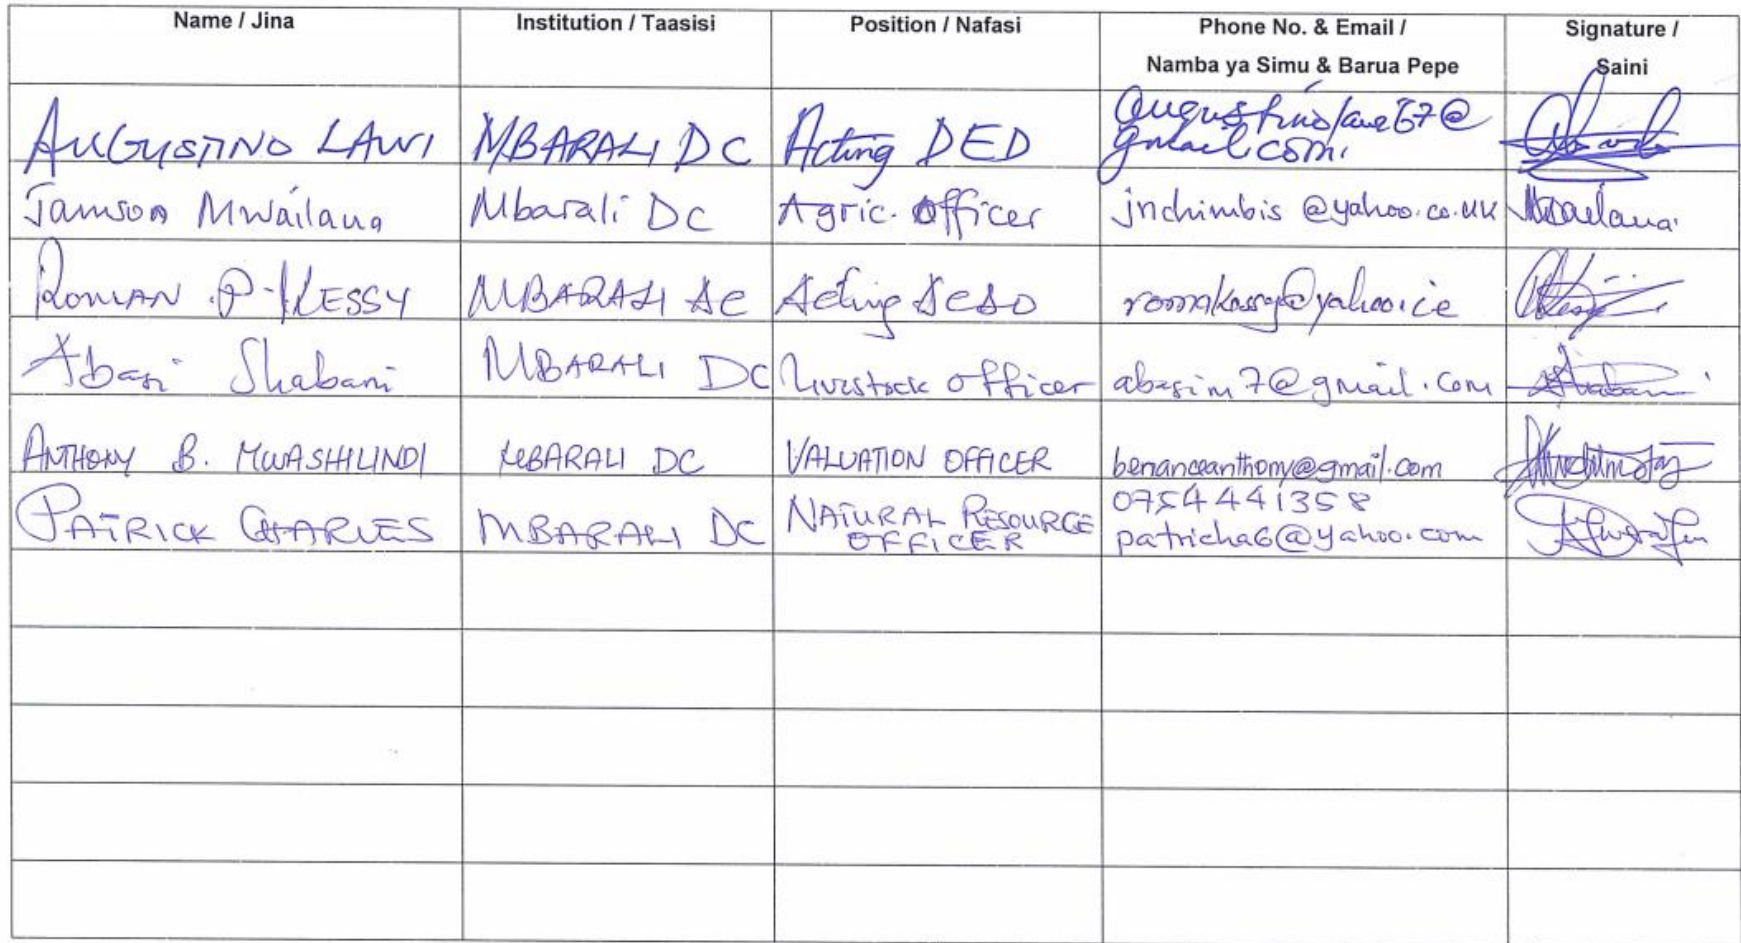 Name / Jina
Institution / Taasisi
Position / Nafasi
Phone No. & Email /
Namba ya Simu & Barua Pepe
Signature /
Saini
AUGUSTINO LAWI MBARALI DC Acting DED
gmail.com.
Jamson Mwailana Mbarali DC Agric. Officer jnchimbis @yahoo.co.uk Mwailana
ROMAN P. KESSY MBARALI DC Acting
Abasi Shabani MBARALI DC Livestock Officer abasim7@gmail.com Shabani
ANTHONY B. MWASHILINDI MBARALI DC VALUATION OFFICER benanceanthony@gmail.com
PATRICK CHARLES MBARALI DC NATURAL RESOURCE
OFFICER
0754441358
patricha6@yahoo.com